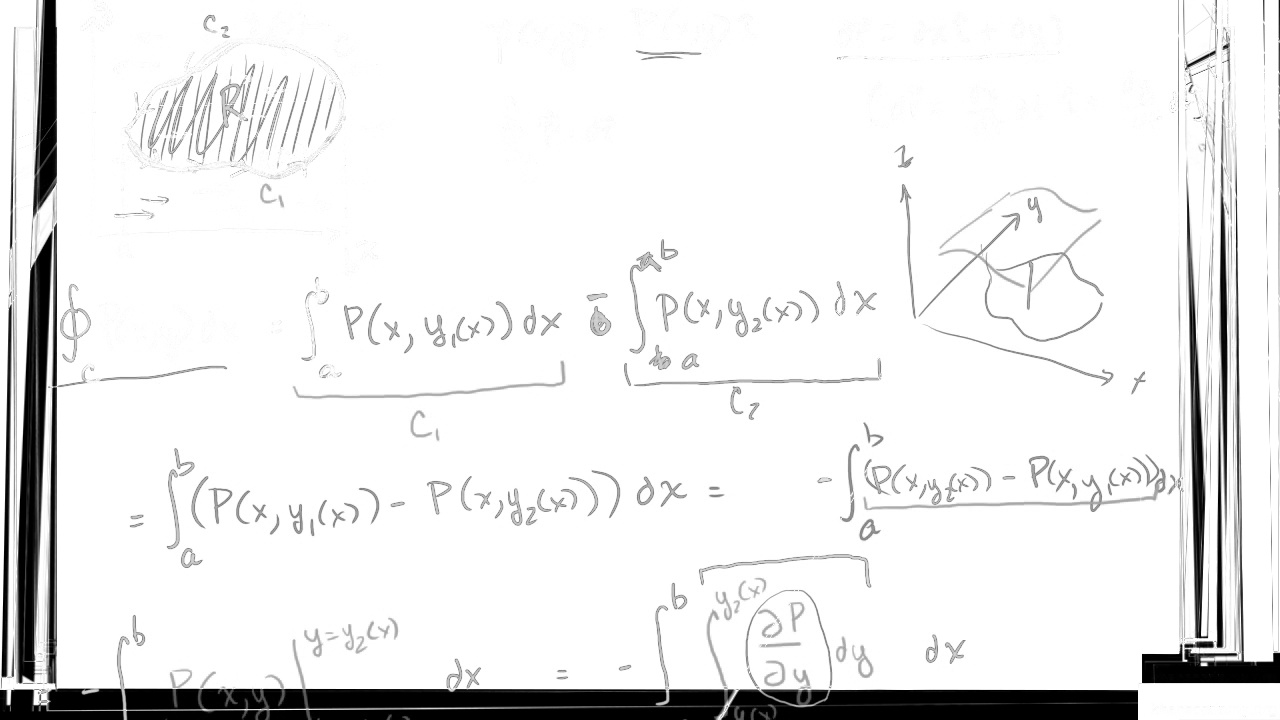 C₂
R
C₁
z
y
x
∮_C = ∫_a^b P(x, y₁(x)) dx - ∫_a^b P(x, y₂(x)) dx
C₁ C₂
= ∫_a^b (P(x, y₁(x)) - P(x, y₂(x))) dx = - ∫_a^b (P(x, y₂(x)) - P(x, y₁(x))) dx
- ∫^b P(x, y) |^{y=y₂(x)} dx = - ∫^b ∫_{y₁(x)}^{y₂(x)} ∂P/∂y dy dx